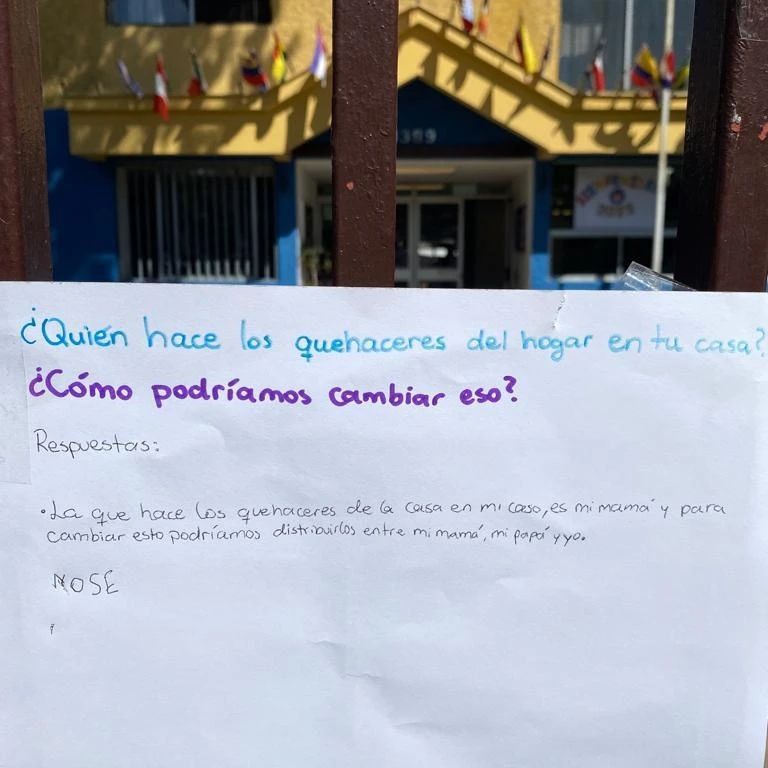 369
¿Quién hace los quehaceres del hogar en tu casa?
¿Cómo podríamos cambiar eso?
Respuestas:
•La que hace los quehaceres de la casa en mi caso, es mi mamá y para
cambiar esto podríamos distribuirlos entre mi mamá, mi papá y yo.
NOSE